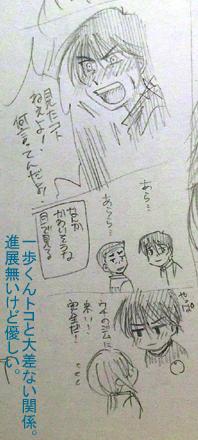 見たコト
ねえよ!
何言ってんだよ!
あら…
あらら…
なんか
かわいそうな
目で見る
やっぱ
ウチのジムに
来い!!
宮田!
一歩くんトコと大差ない関係。
進展無いけど優しい。